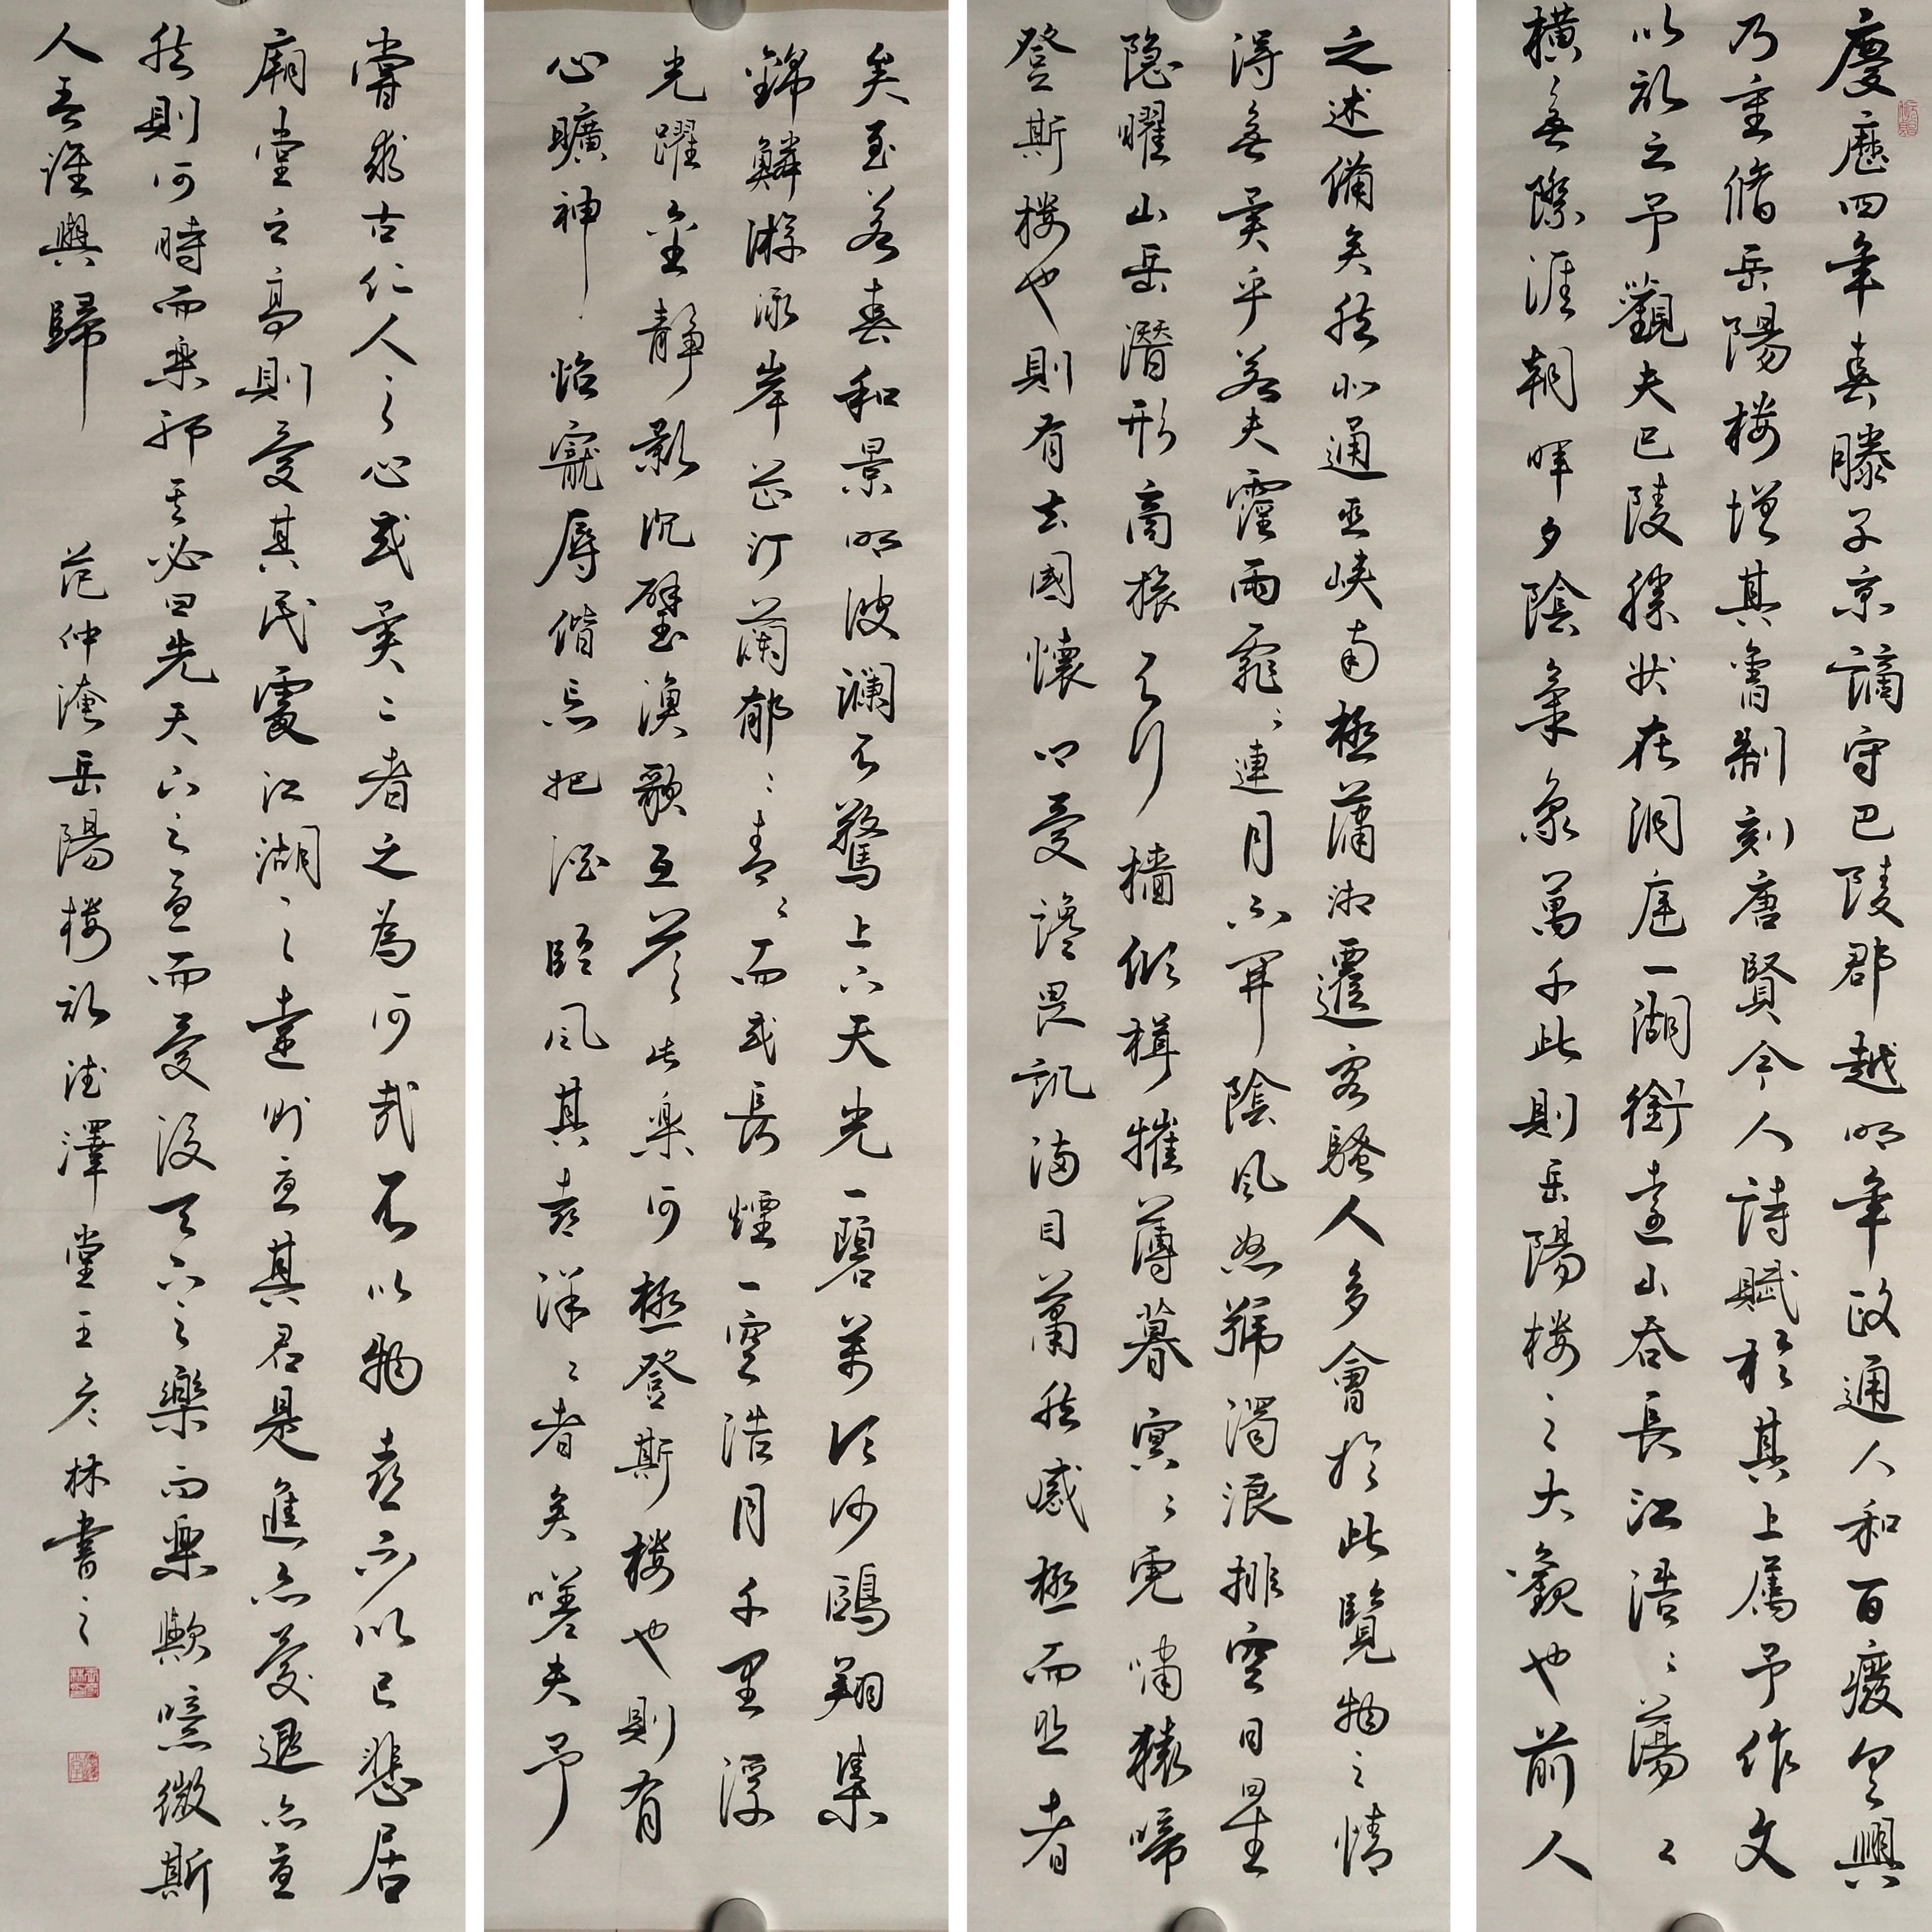 慶歷四年春滕子京謫守巴陵郡越明年政通人和百廢具興
乃重脩岳陽楼增其舊制刻唐賢今人詩賦於其上屬予作文
以記之予觀夫巴陵勝狀在洞庭一湖銜遠山吞長江浩〻蕩〻
橫無際涯朝暉夕陰氣象萬千此則岳陽楼之大觀也前人
之述備矣然北通巫峽南極瀟湘遷客騷人多會於此覽物之情
得無異乎若夫霪雨霏〻連月不開陰風怒號濁浪排空日星
隐曜山岳潛形商旅不行檣傾楫摧薄暮冥〻虎嘯猿啼
登斯楼也則有去國懷鄉憂讒畏譏滿目蕭然感極而悲者
矣至若春和景明波瀾不驚上下天光一碧萬頃沙鷗翔集
錦鱗游泳岸芷汀蘭郁〻青〻而或長煙一空浩月千里浮
光躍金靜影沉璧漁歌互答此樂何極登斯楼也則有
心曠神怡寵辱偕忘把酒臨風其喜洋〻者矣嗟夫予
嘗求古仁人之心或異二者之為何哉不以物喜不以己悲居
廟堂之高則憂其民處江湖之遠則憂其君是進亦憂退亦憂
然則何時而樂耶其必曰先天下之憂而憂後天下之樂而樂歟噫微斯
人吾誰與歸 范仲淹岳陽楼記德澤堂主彦林書之